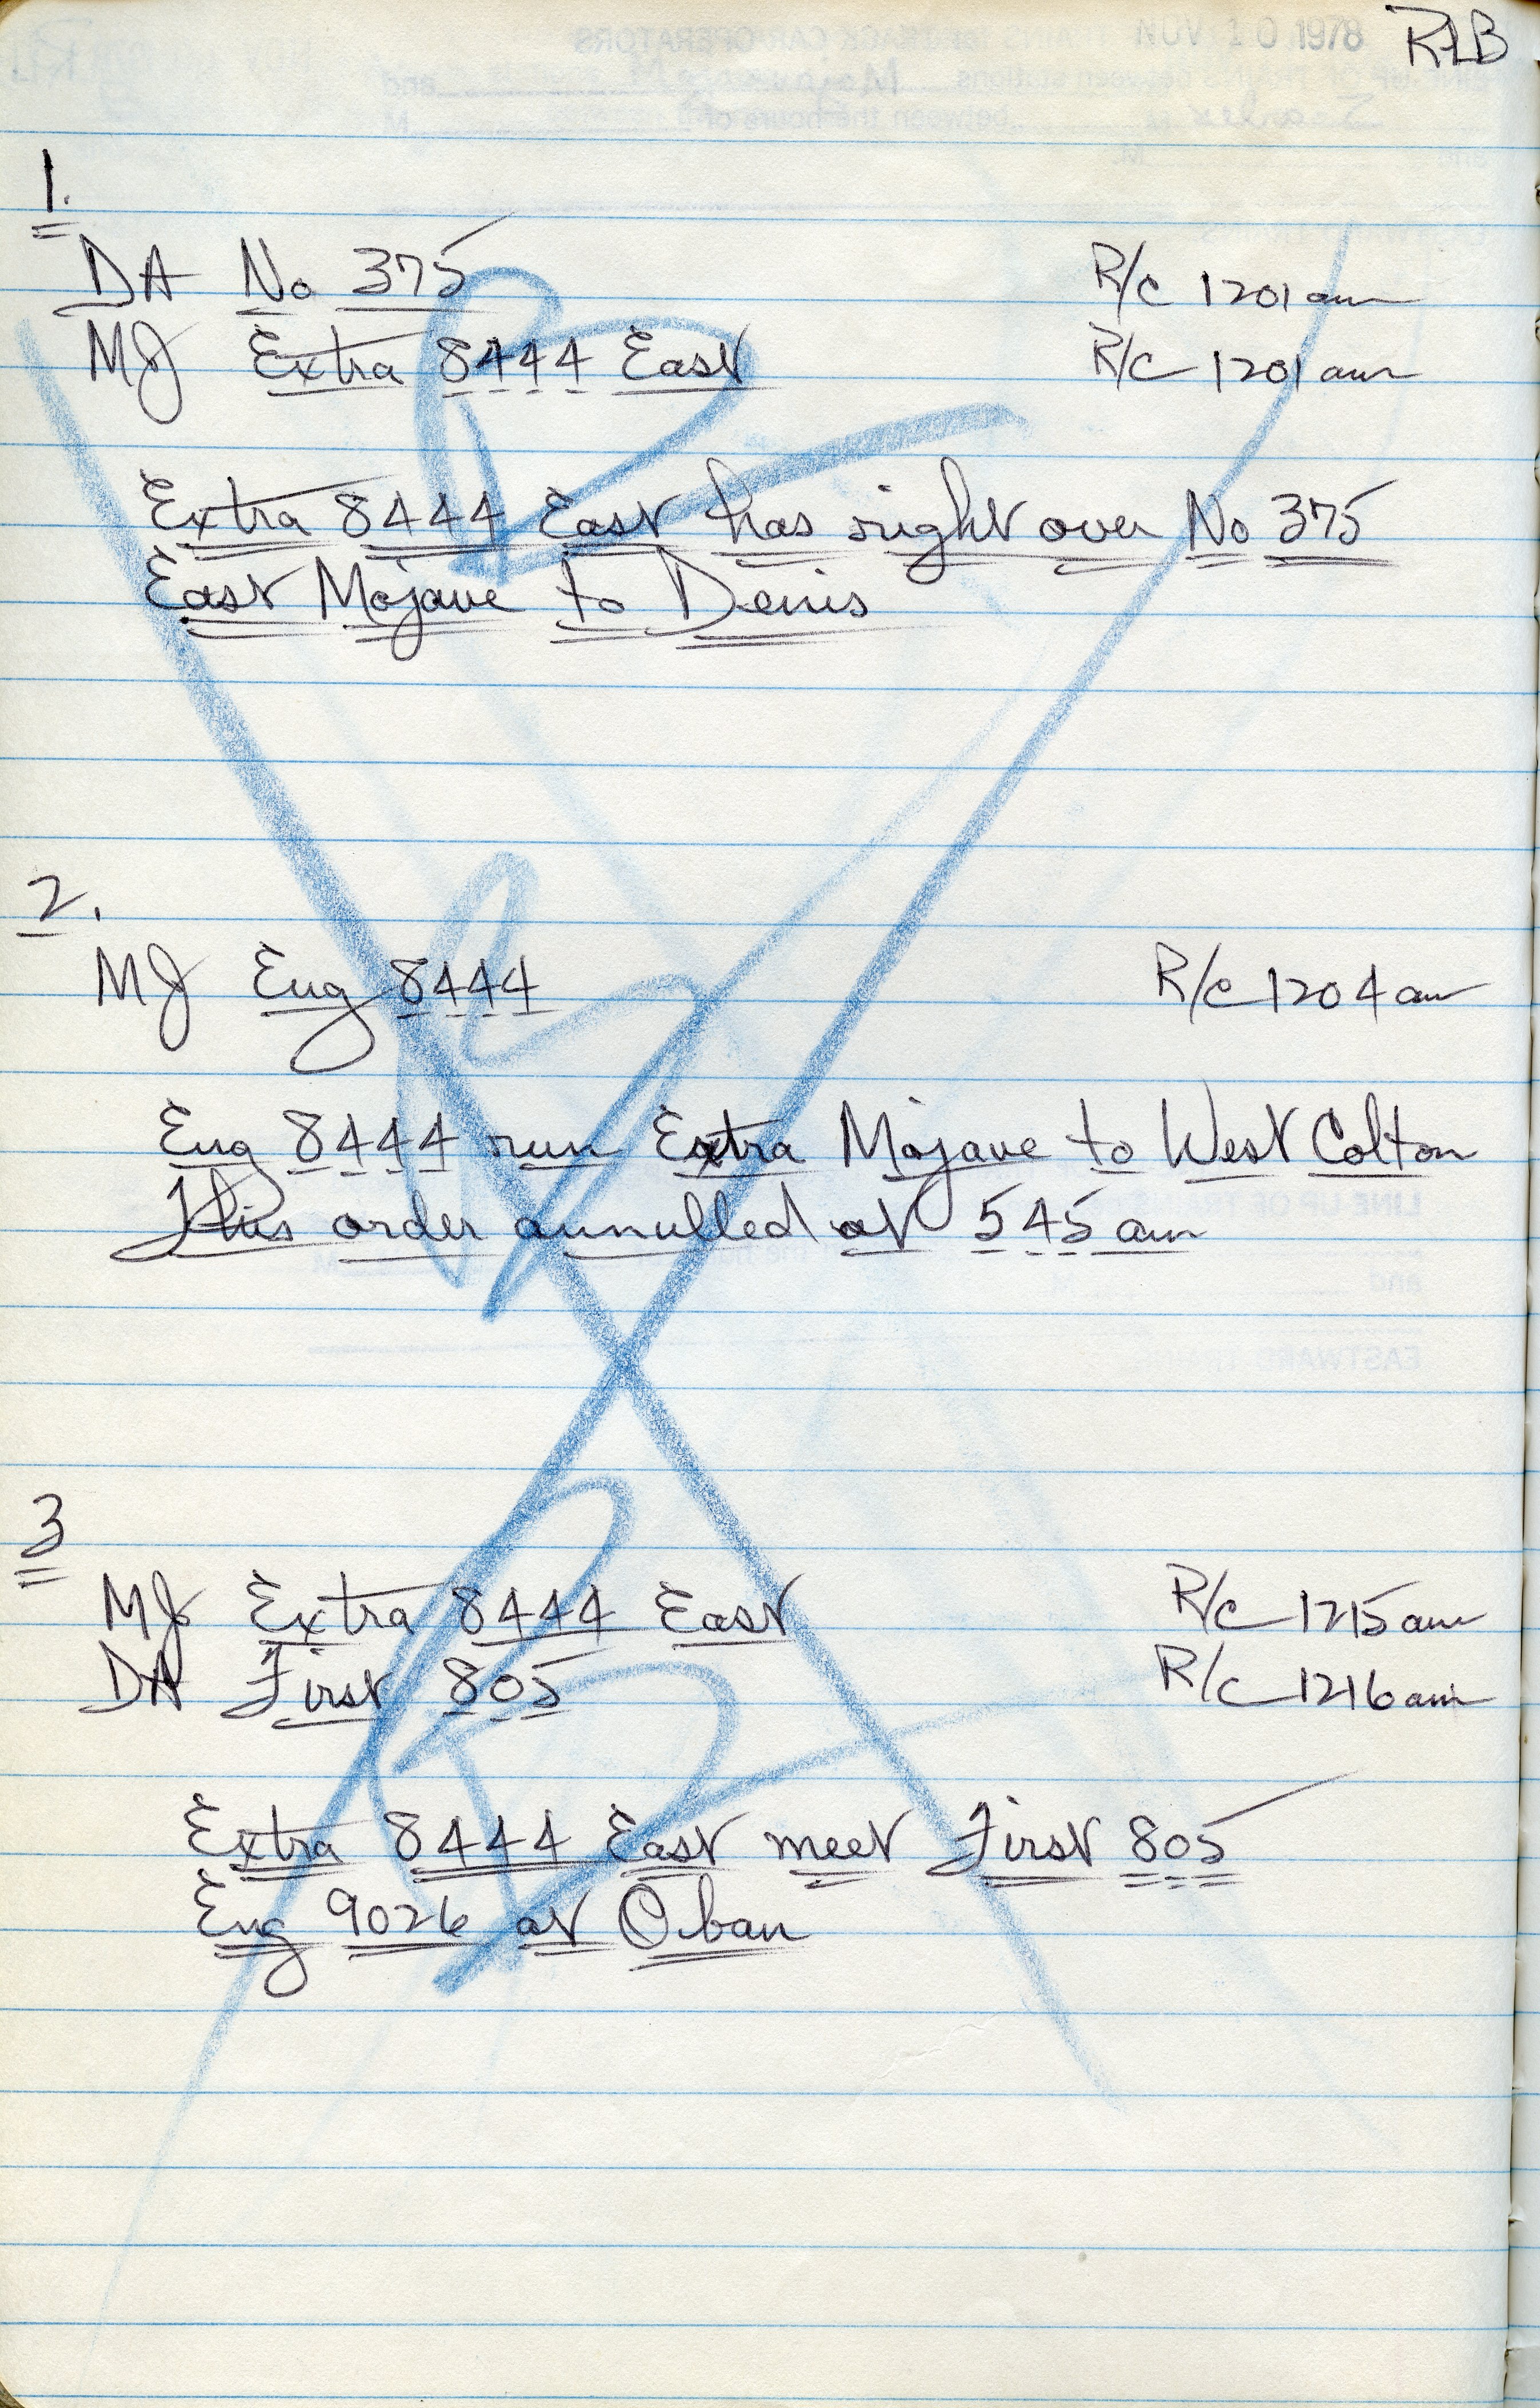 NOV 10 1978 RLB
1.
DA No 375 R/c 1201 am
MJ Extra 8444 East R/c 1201 am
Extra 8444 East has right over No 375
East Mojave to Denis
2.
MJ Eng 8444 R/c 1204 am
Eng 8444 run Extra Mojave to West Colton
This order annulled at 545 am
3
MJ Extra 8444 East R/c 1215 am
DA First 805 R/c 1216 am
Extra 8444 East meet First 805
Eng 9026 at Oban